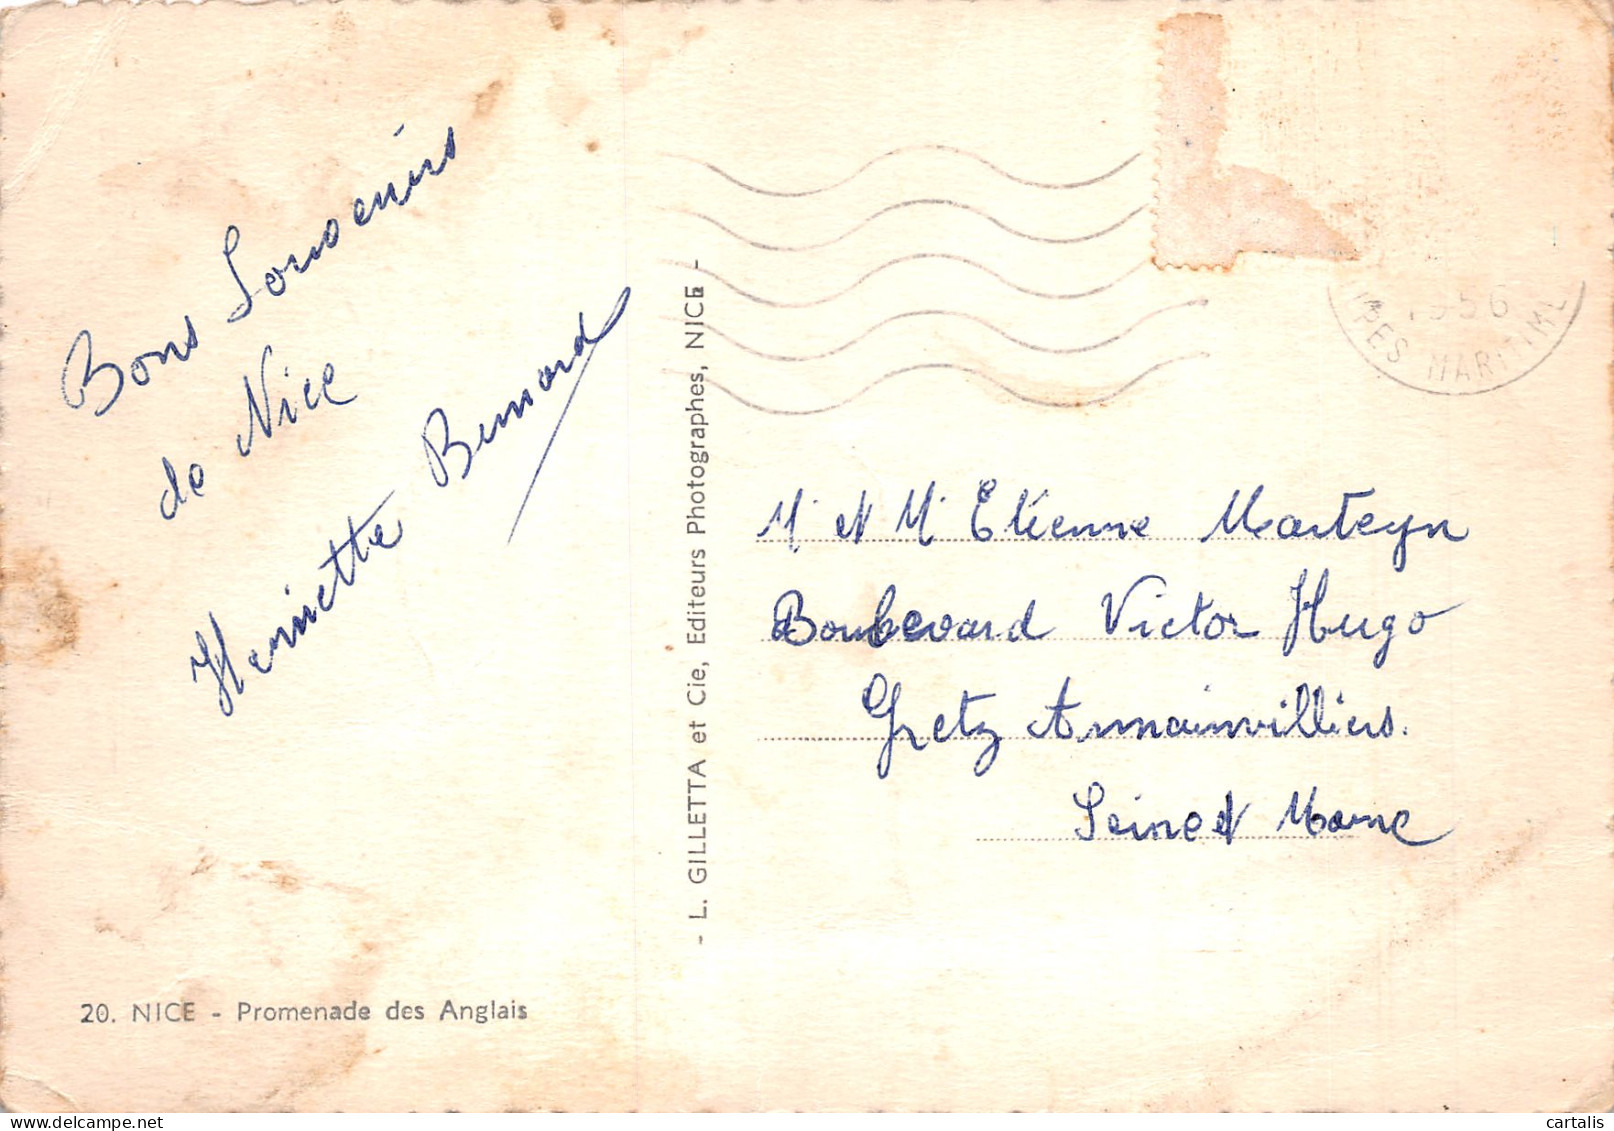 Bons Souvenirs
de Nice
Henriette Bernard
20. NICE - Promenade des Anglais
- L. GILLETTA et Cie, Editeurs Photographes, NICE -
1956
PES MARITIME
Mr et Mr Etienne Marteyn
Boulevard Victor Hugo
Gretz Armainvilliers.
Seine et Marne
cartalis